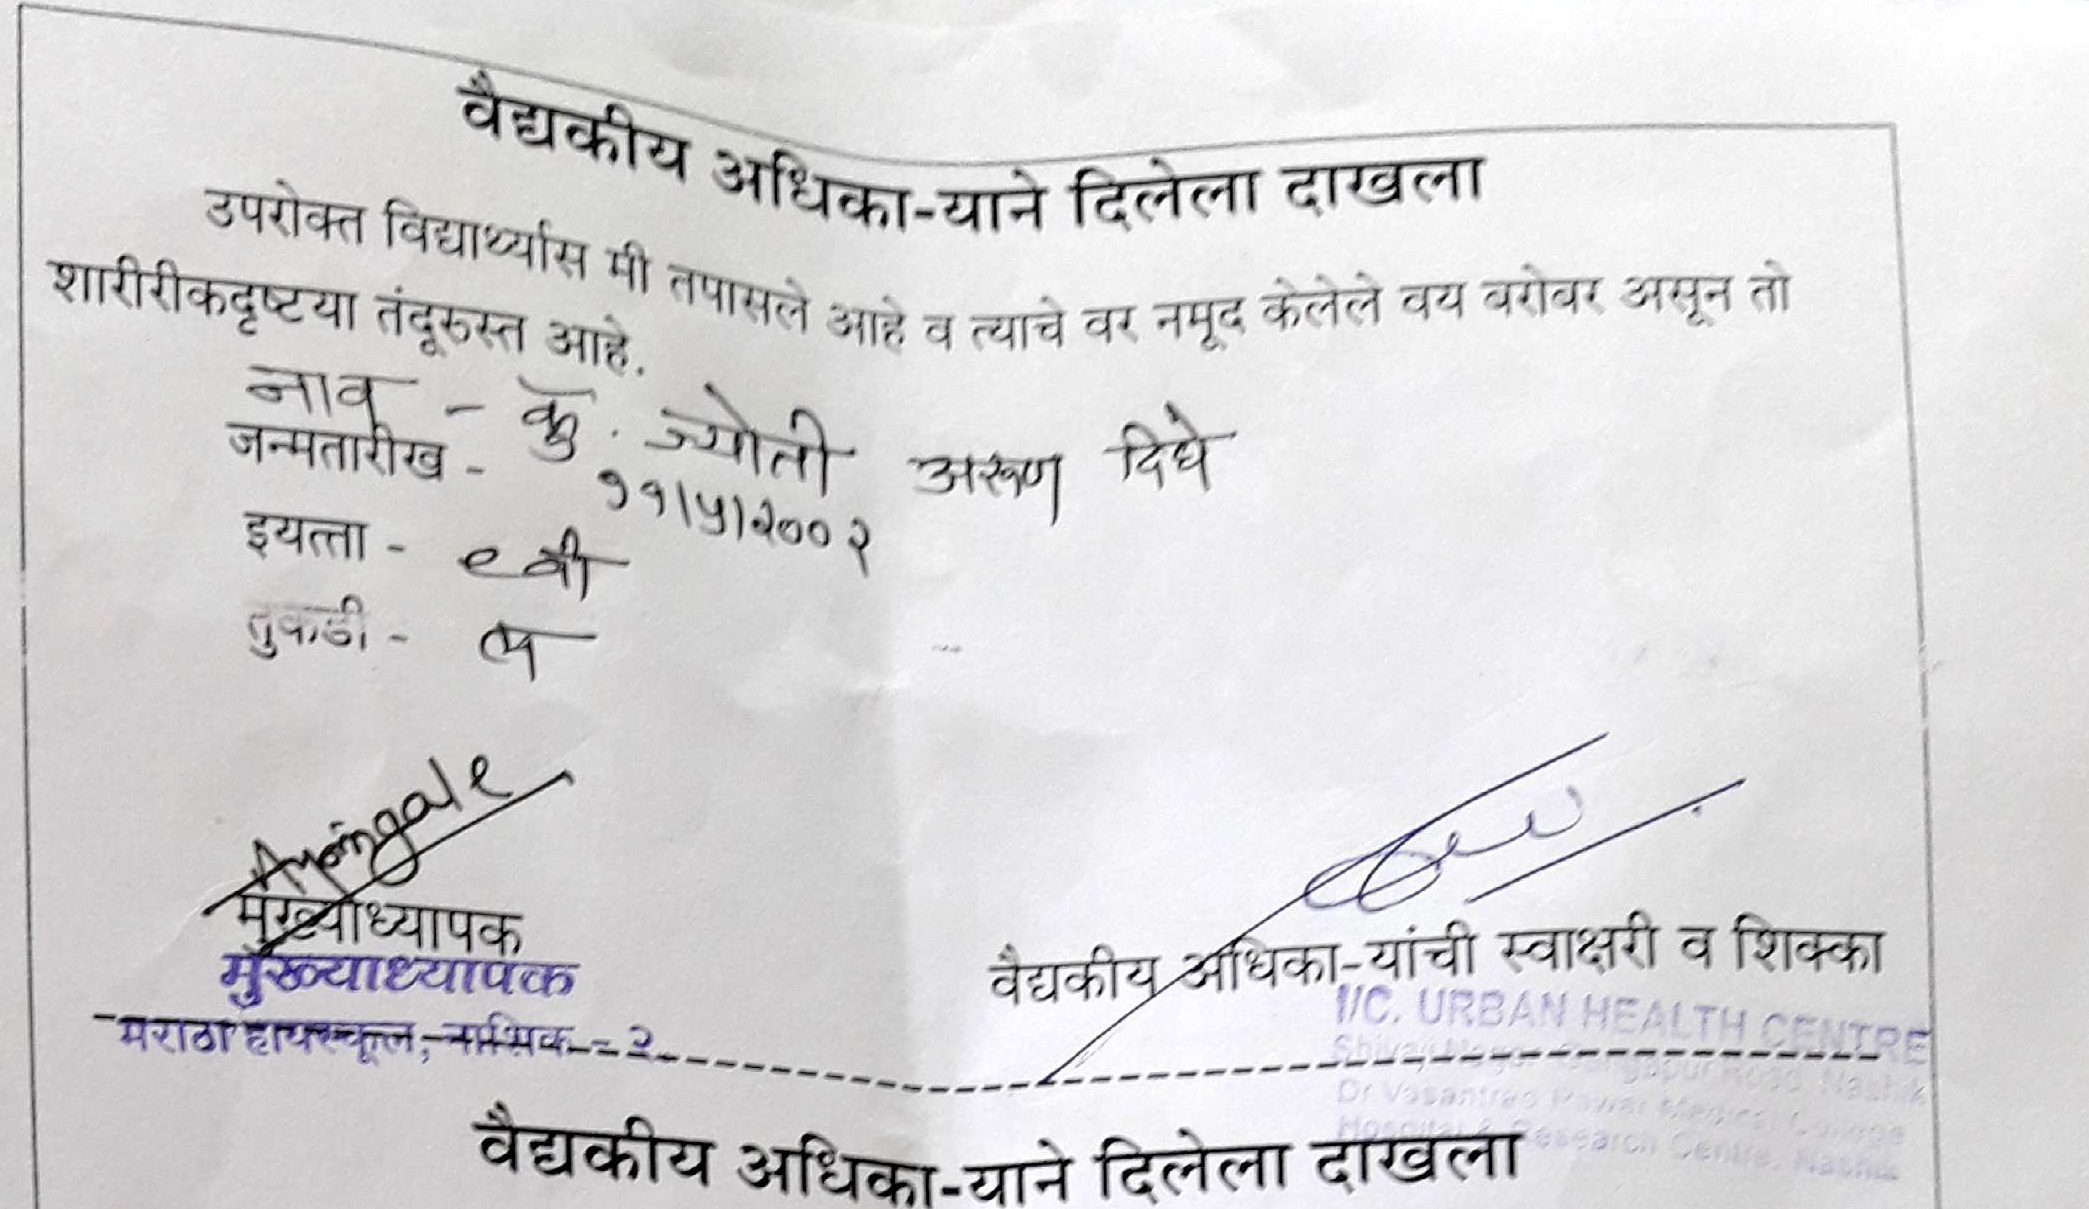 वैद्यकीय अधिका-याने दिलेला दाखला
उपरोक्त विद्यार्थ्यास मी तपासले आहे व त्याचे वर नमूद केलेले वय बरोबर असून तो
शारीरीकदृष्टया तंदूरुस्त आहे.
नाव - कु. ज्योती अरुण दिघे
जन्मतारीख - ११।५।२००२
इयत्ता - ९ वी
तुकडी -
मुख्याध्यापक
मुख्याध्यापक
मराठा हायस्कूल, नाशिक - २
वैद्यकीय अधिका-यांची स्वाक्षरी व शिक्का
I/C. URBAN HEALTH CENTRE
Shivaji Nagar, Gangapur Road, Nashik
Dr Vasantrao Pawar Medical College
Hospital & Research Centre, Nashik
वैद्यकीय अधिका-याने दिलेला दाखला